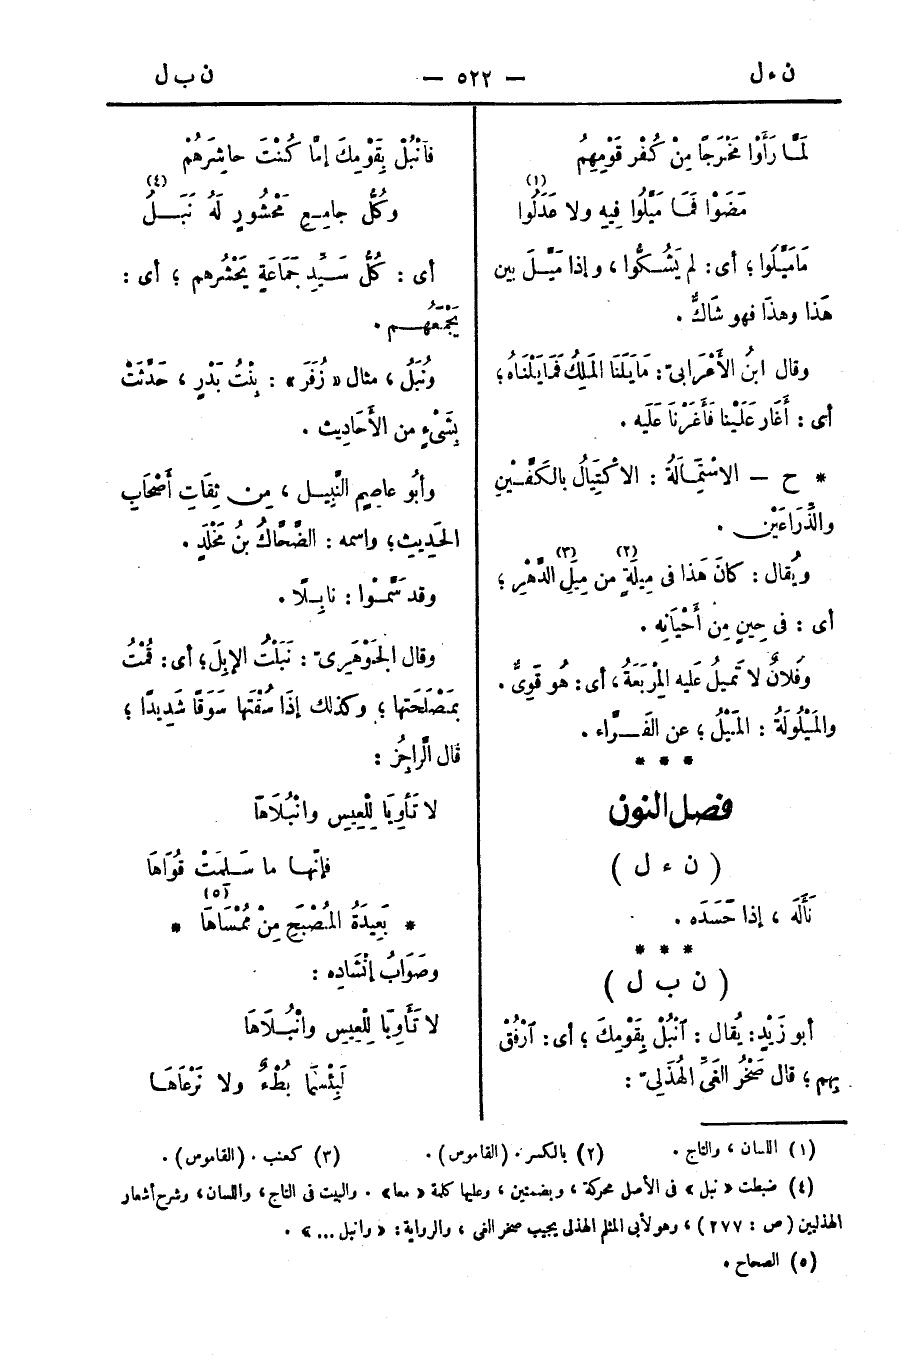 ن ء ل — ٥٢٢ — ن ب ل
لَمَّا رَأَوْا مَخْرَجًا مِنْ كُفْرِ قَوْمِهِمُ
مَضَوْا فَمَا مَيَّلُوا فِيهِ ولا عَدَلُوا (١)
مَامَيَّلُوا ؛ أى : لم يَشُكُّوا ، وإذا مَيَّلَ بين
هَذا وهذَا فهو شَاكٌّ .
وقال ابنُ الأَعْرَابىّ : مَايَلَنَا المَلِكُ فَمَايَلْنَاهُ ؛
أى : أَغَار عَلَيْنا فَأَغَرْنَا عَلَيه .
* ح — الاسْتِمَالَةُ : الاكْتِيَالُ بالكَفَّيْنِ
والذِّرَاعَيْن .
ويُقال : كانَ هَذا فى مِيلَةٍ (٢) من مِيَلِ (٣) الدَّهْرِ ؛
أى : فى حِينٍ مِنْ أَحْيَانِه .
وفُلانٌ لا تَمِيلُ عَليه المِرْبَعَةُ ، أى : هُو قَوِىٌّ .
والمَيْلُولَةُ : المَيْلُ ؛ عن الفَرَّاء .
* * *
فصل النون
( ن ء ل )
نَأَلَه ، إذا حَسَدَه .
* * *
( ن ب ل )
أبو زَيْدٍ : يُقال : اُنْبُلْ بِقَوْمِكَ ؛ أى : اُرْفُقْ
بِهم ؛ قال صَخْرُ الغَىِّ الهُذَلِىّ :
فَاْنْبُلْ بِقَوْمِكَ إمَّا كُنْتَ حاشِرَهُمْ
وكُلُّ جامِعِ مَحْشُورٍ لَهُ نَبَلُ (٤)
أى : كُلُّ سَيِّدِ جَمَاعَةٍ يَحْشُرهم ؛ أى :
يَجْمَعُهُم .
ونُبَلُ ، مثال « زُفَرَ » : بِنْتُ بَدْرٍ ، حَدَّثَتْ
بِشَىْءٍ من الأَحَادِيث .
وأبُو عاصِمٍ النَّبِيل ، مِن ثِقَاتِ أَصْحَابِ
الحَدِيثِ ؛ واسمه : الضَّحَّاكُ بنُ مَخْلَدٍ .
وقد سَمَّوْا : نابِلًا .
وقال الجَوْهَرِىّ : نَبَلْتُ الإبِلَ ؛ أى : قُمْتُ
بمَصْلَحَتِها ؛ وكذلك إذَا سُقْتَها سَوْقًا شَدِيدًا ؛
قال الرَّاجِزُ :
لا تَأْوِيَا لِلْعِيسِ وانْبُلَاهَا
فإنّها ما سَلِمَتْ قُوَاهَا
* بَعِيدَةُ المُصْبَحِ مِنْ مُمْسَاهَا (٥) *
وصَوَابُ إنْشَادِه :
لا تَأْوِيَا لِلْعِيسِ وانْبُلَاهَا
لَبِئْسَمَا بُطْءٌ ولا نَرْعَاهَا
(١) اللسان ، والتاج . (٢) بالكسر . (القاموس) . (٣) كعنب . (القاموس) .
(٤) ضبطت « نبل » فى الأصل محركة ، وبضمتين ، وعليها كلمة « معا » . والبيت فى التاج ، واللسان ، وشرح أشعار
الهذليين (ص : ٢٧٧) ، وهو لأبى المثلم الهذلى يجيب صخر الغى ، والرواية : « وانبل ... » .
(٥) الصحاح .